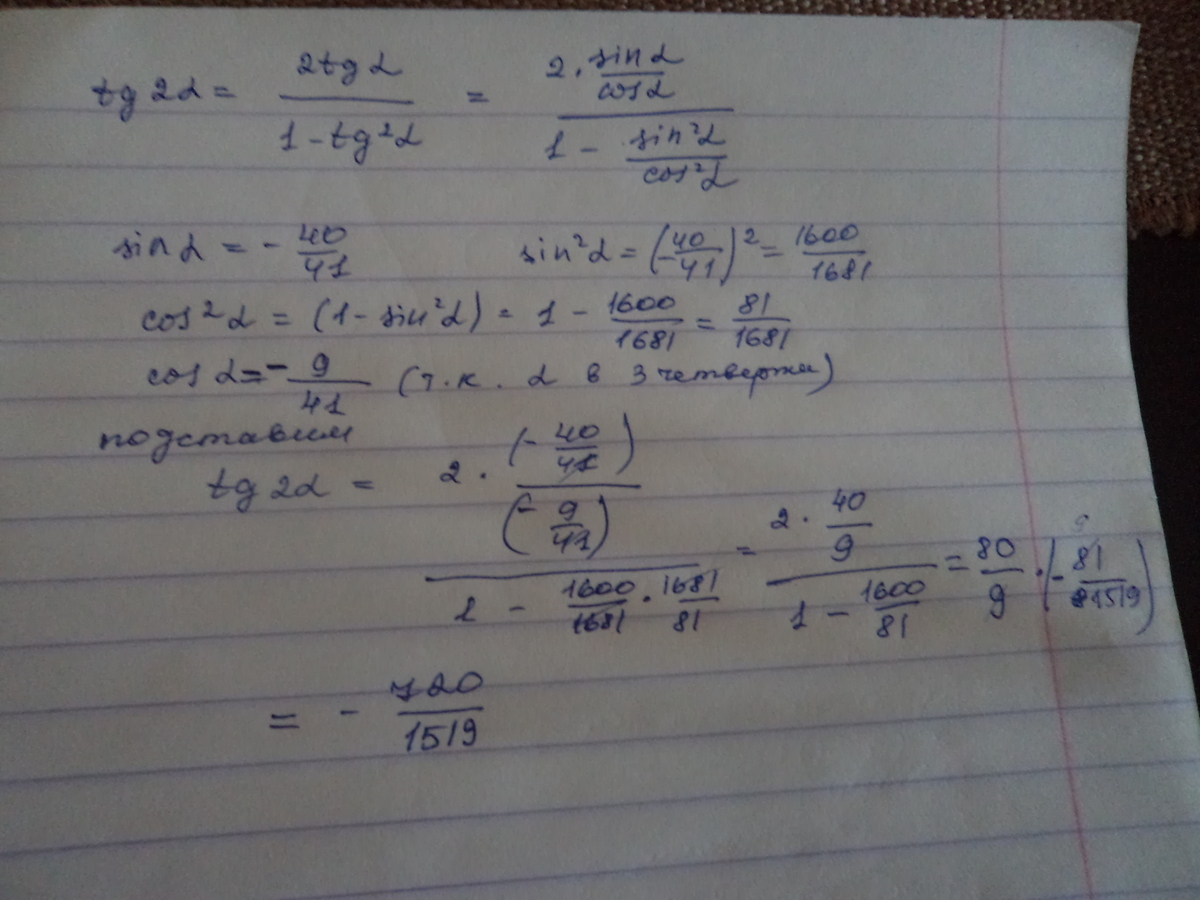 tg 2α = 2tg α / 1 - tg²α = 2 · sin α / cos α / 1 - sin²α / cos²α
sin α = - 40/41 sin²α = (-40/41)² = 1600/1681
cos²α = (1 - sin²α) = 1 - 1600/1681 = 81/1681
cos α = - 9/41 (т.к. α в 3 четверти)
подставим
tg 2α = 2 · (-40/41) / (-9/41) / 1 - 1600/1681 · 1681/81 = 2 · 40/9 / 1 - 1600/81 = 80/9 · (-81/1519)
= - 720/1519